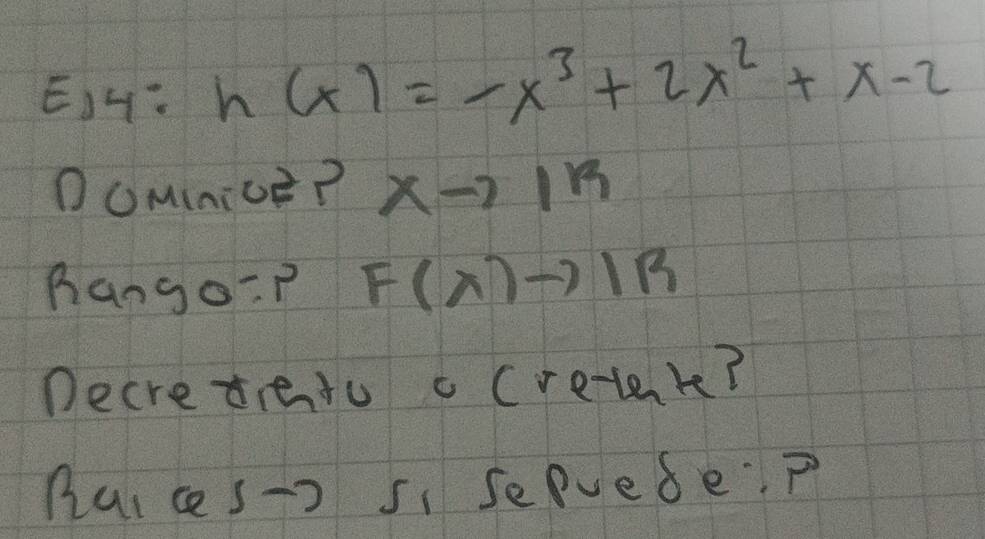 Ej4: h(x) = -x³ + 2x² + x - 2
Dominio=? x → IR
Rango=? F(x) → IR
Decreciento o Creciente?
Raices → si se puede:?